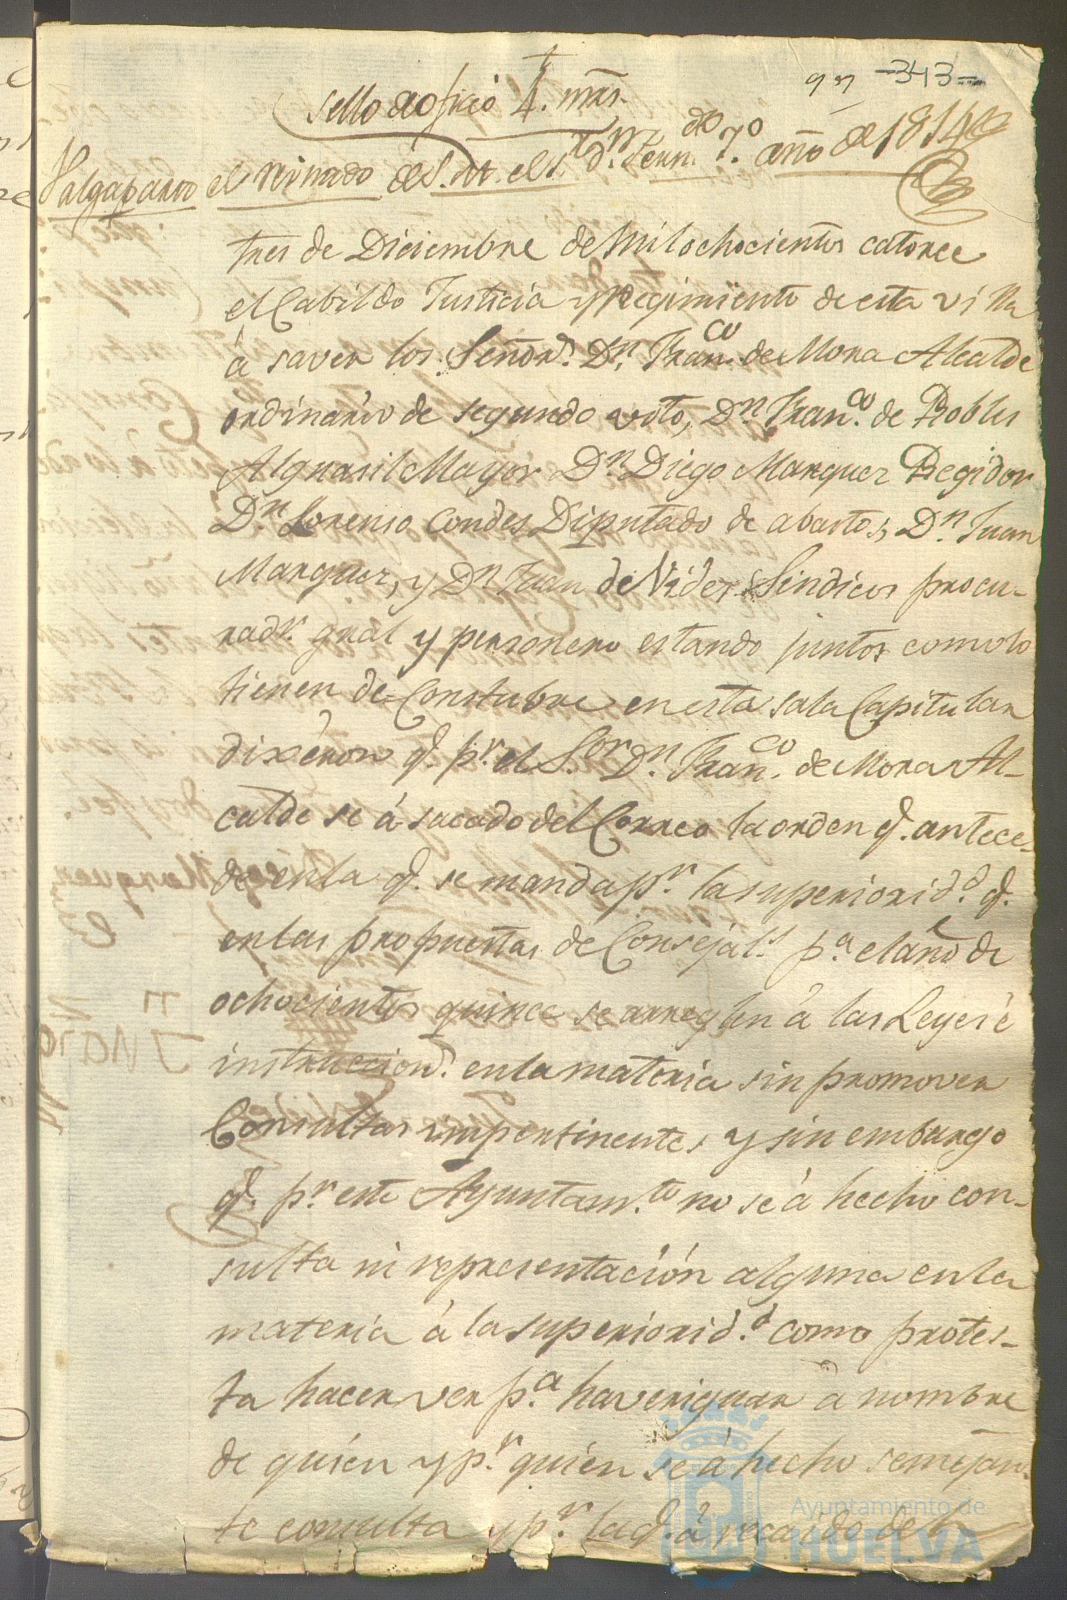 97 -343-
Sello de oficio 4. mrs.
Valga para el reinado de S. M. el Sr. Dn. Fern.do 7.º año de 1814
tres de Diciembre de mil ochocientos catorce
el Cabildo Justicia y Regimiento de esta villa
á saver los Señor.s Dn. Fran.co de Mora Alcalde
ordinario de segundo voto, Dn. Fran.co de Robles
Alguasil Mayor Dn. Diego Marquez Regidor
Dn. Lorenso Condes Diputado de abastos, Dn. Juan
Marquez, y Dn. Juan de Vides Sindicos procu-
radr. gral y personero estando juntos como lo
tienen de Constubre en esta sala Capitular
dixeron q. pr. el S.or Dn. Fran.co de Mora Al-
calde se á sacado del Correo la orden q. antece-
de en la q. se manda pr. la superiorid.d q.
en las propuestas de Consejal.s p.a el año de
ochocientos quince se arreglen á las Leyes é
instruccion.s en la materia sin promover
Consultas impertinentes y sin embargo
q. pr. este Ayuntam.to no se á hecho con-
sulta ni representación alguna en la
materia á la superiorid.d como protes-
ta hacer ver p.a haveriguar á nombre
de quién y pr. quién se á hecho semejan-
te consulta y pr. la q. á recaido de
Ayuntamiento de
HUELVA